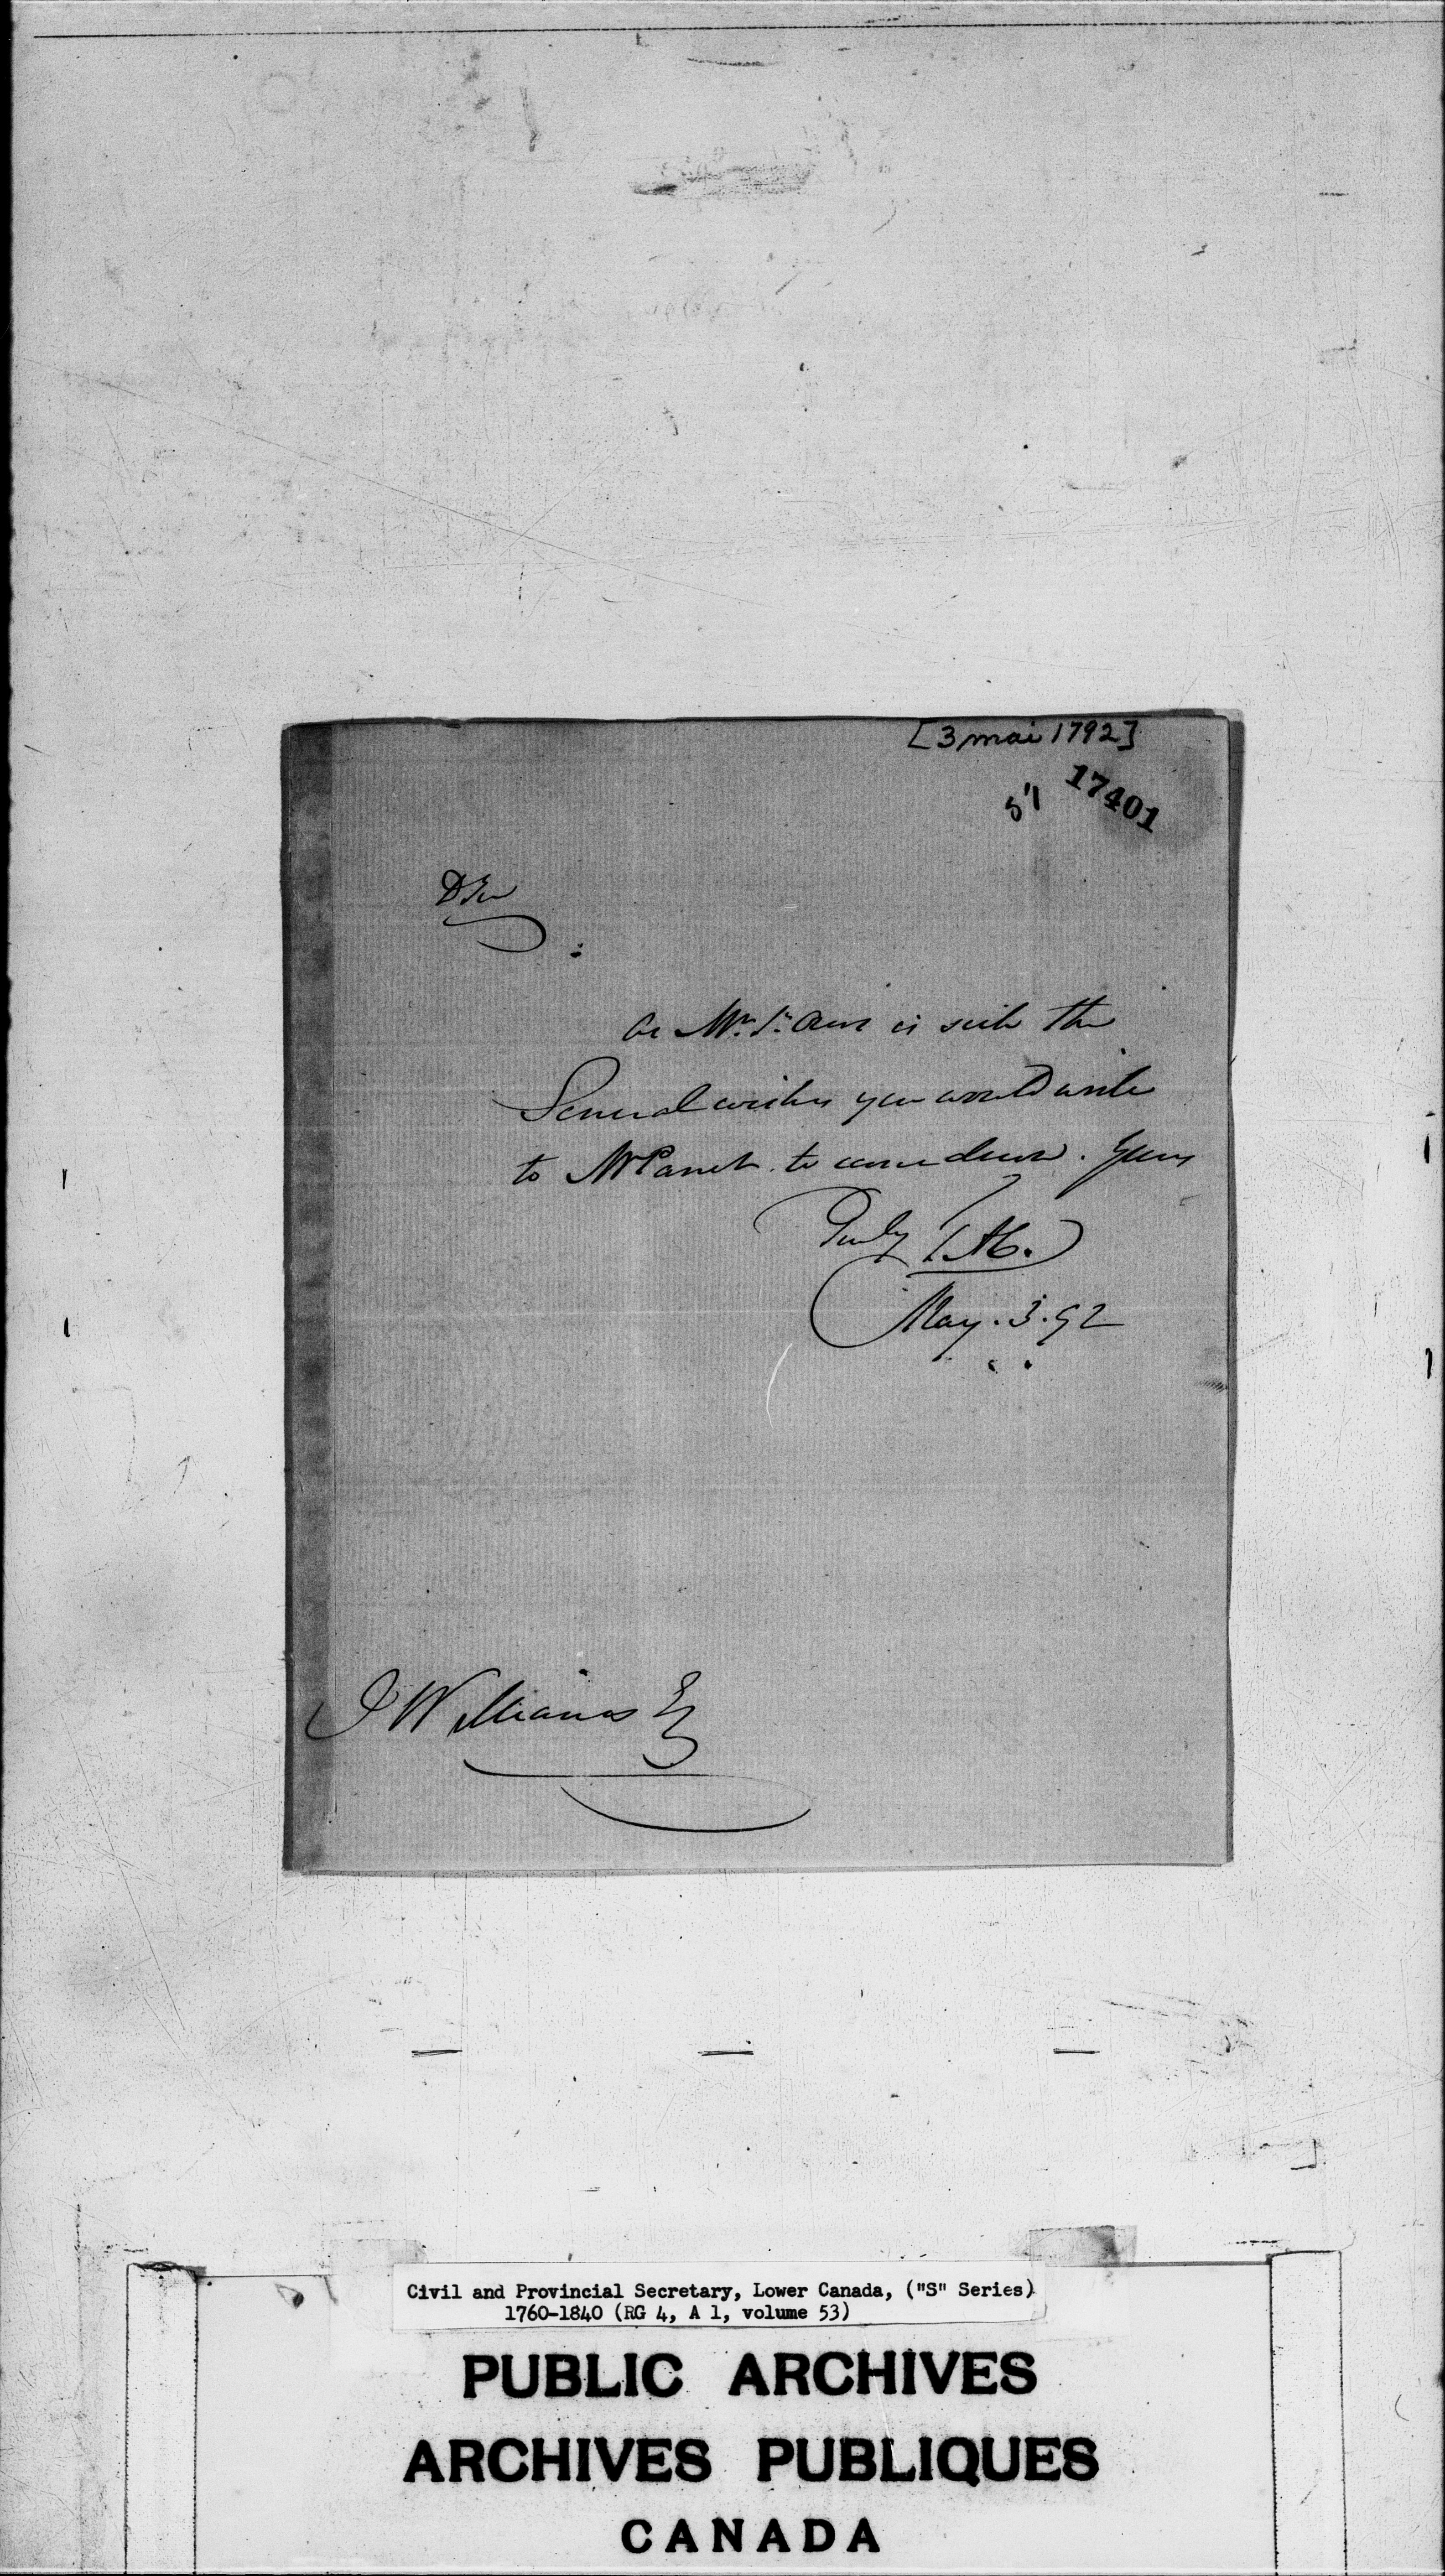 [3 mai 1792]
17401
D Sir
As Mr. St. Ours is sick the
General wishes you would write
to Mr Panet to come down. Yours
Truly
May. 3. 92
J Williams Esq
Civil and Provincial Secretary, Lower Canada, ("S" Series)
1760-1840 (RG 4, A 1, volume 53)
PUBLIC ARCHIVES
ARCHIVES PUBLIQUES
CANADA